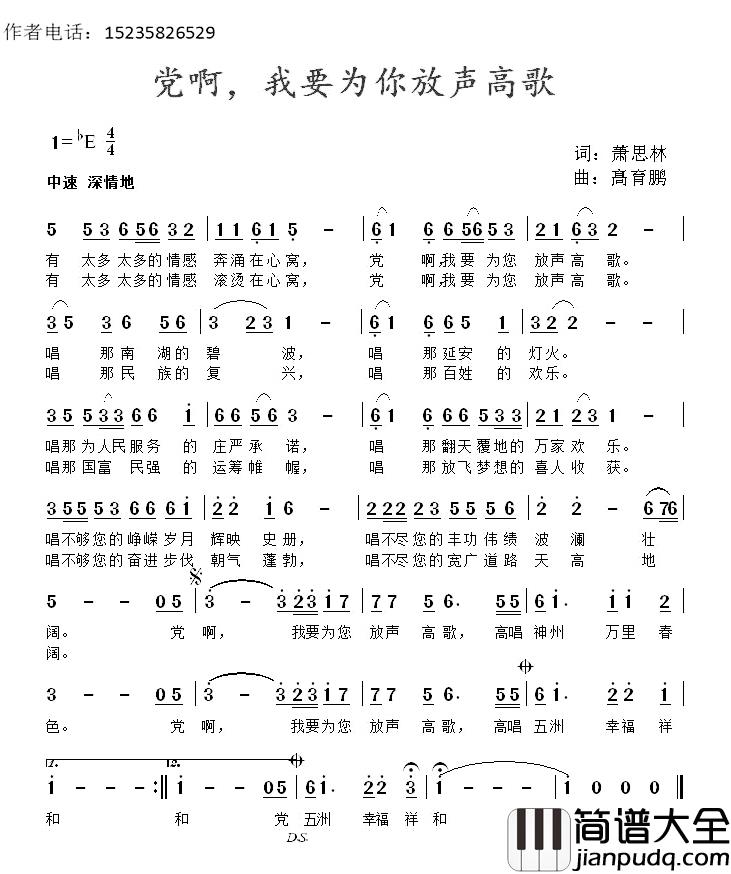 作者电话：15235826529
党啊，我要为你放声高歌
1=♭E 4/4
词：萧思林
中速 深情地
曲：高育鹏
5 5 3 6 5 6 3 2 | 1 1 6 1 5 - | 6 1 6 6 5 6 5 3 | 2 1 6 3 2 - |
有 太多 太多的 情感 奔涌 在心 窝， 党 啊,我要 为您 放声 高 歌。
有 太多 太多的 情感 滚烫 在心 窝， 党 啊,我要 为您 放声 高 歌。
3 5 3 6 5 6 | 3 2 3 1 - | 6 1 6 6 5 6 | 3 2 2 - - |
唱 那 南 湖的 碧 波， 唱 那 延安 的 灯火。
唱 那 民 族的 复 兴， 唱 那 百姓 的 欢乐。
3 5 5 3 3 6 6 1 | 6 6 5 6 3 - | 6 1 6 6 5 6 5 3 3 | 2 1 2 3 1 - |
唱那 为人民 服务 的 庄严 承 诺， 唱 那 翻天 覆地的 万家 欢 乐。
唱那 国富 民强 的 运筹 帷 幄， 唱 那 放飞 梦想的 喜人 收 获。
3 5 5 5 5 3 6 6 6 1 | 2 2 1 6 - | 2 2 2 2 5 5 5 6 5 | 2 2 6 7 6 |
唱不够 您的 峥嵘 岁月 辉映 史 册， 唱不尽 您的 丰功 伟绩 波 澜 壮
唱不够 您的 奋进 步伐 朝气 蓬 勃， 唱不尽 您的 宽广 道路 天 高 地
5 - - 0 5 | 3 - 3 2 3 1 7 | 7 7 5 6 5. 5 5 | 6 1. 1 1 2 |
阔。 党 啊， 我要为您 放声 高 歌， 高唱 神州 万里 春
阔。
3 - - 0 5 | 3 - 3 2 3 1 7 | 7 7 5 6 5. 5 5 | 6 1. 2 2 1 |
色。 党 啊， 我要为您 放声 高 歌， 高唱 五洲 幸福 祥
1. 2.
1 - - - :| 1 - - 0 5 | 6 1. 2 2 3 | 1 - - - | 1 0 0 0 ‖
和 和 党 五洲 幸福 祥 和
D.S.
简谱大全
jianpudq.com